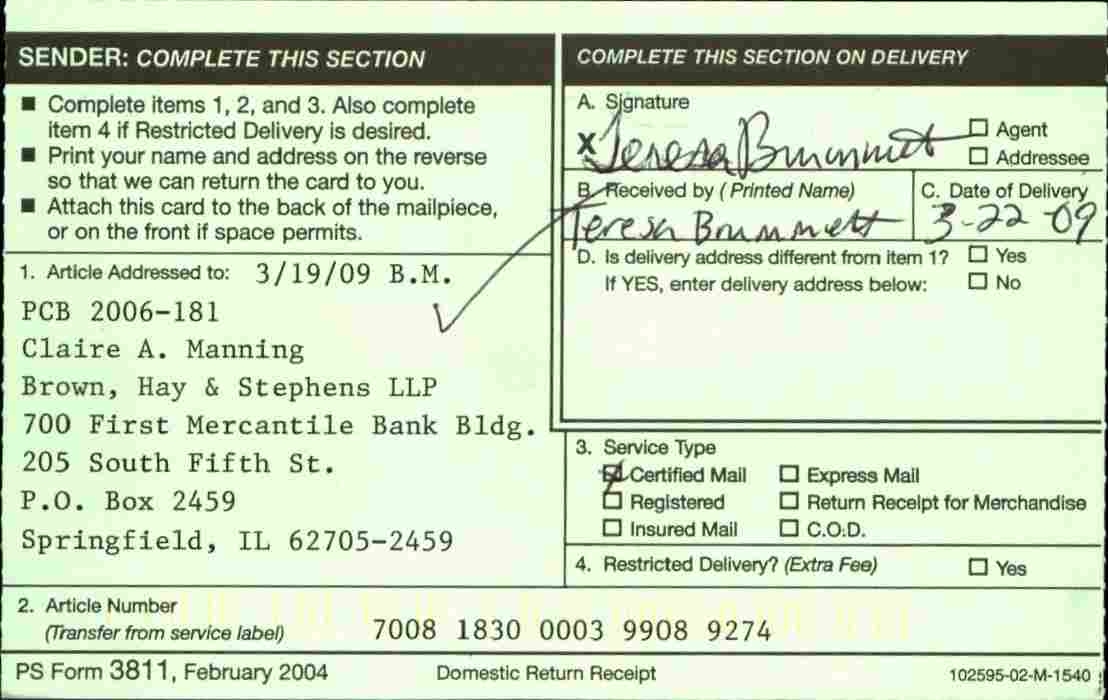 SENDER: COMPLETE THIS SECTION
■ Complete items 1, 2, and 3. Also complete
item 4 if Restricted Delivery is desired.
■ Print your name and address on the reverse
so that we can return the card to you.
■ Attach this card to the back of the mailpiece,
or on the front if space permits.
1. Article Addressed to: 3/19/09 B.M.
PCB 2006-181
Claire A. Manning
Brown, Hay & Stephens LLP
700 First Mercantile Bank Bldg.
205 South Fifth St.
P.O. Box 2459
Springfield, IL 62705-2459
COMPLETE THIS SECTION ON DELIVERY
A. Signature
X Teresa Brummett
☐ Agent
☐ Addressee
B. Received by (Printed Name)
Teresa Brummett
C. Date of Delivery
3-22-09
D. Is delivery address different from item 1? ☐ Yes
If YES, enter delivery address below: ☐ No
3. Service Type
☑ Certified Mail ☐ Express Mail
☐ Registered ☐ Return Receipt for Merchandise
☐ Insured Mail ☐ C.O.D.
4. Restricted Delivery? (Extra Fee) ☐ Yes
2. Article Number
(Transfer from service label) 7008 1830 0003 9908 9274
PS Form 3811, February 2004 Domestic Return Receipt 102595-02-M-1540